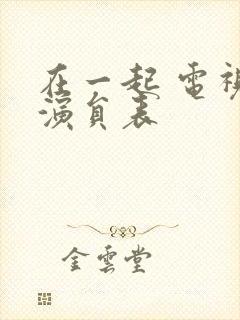 在一起 電視
演員表
金雲堂